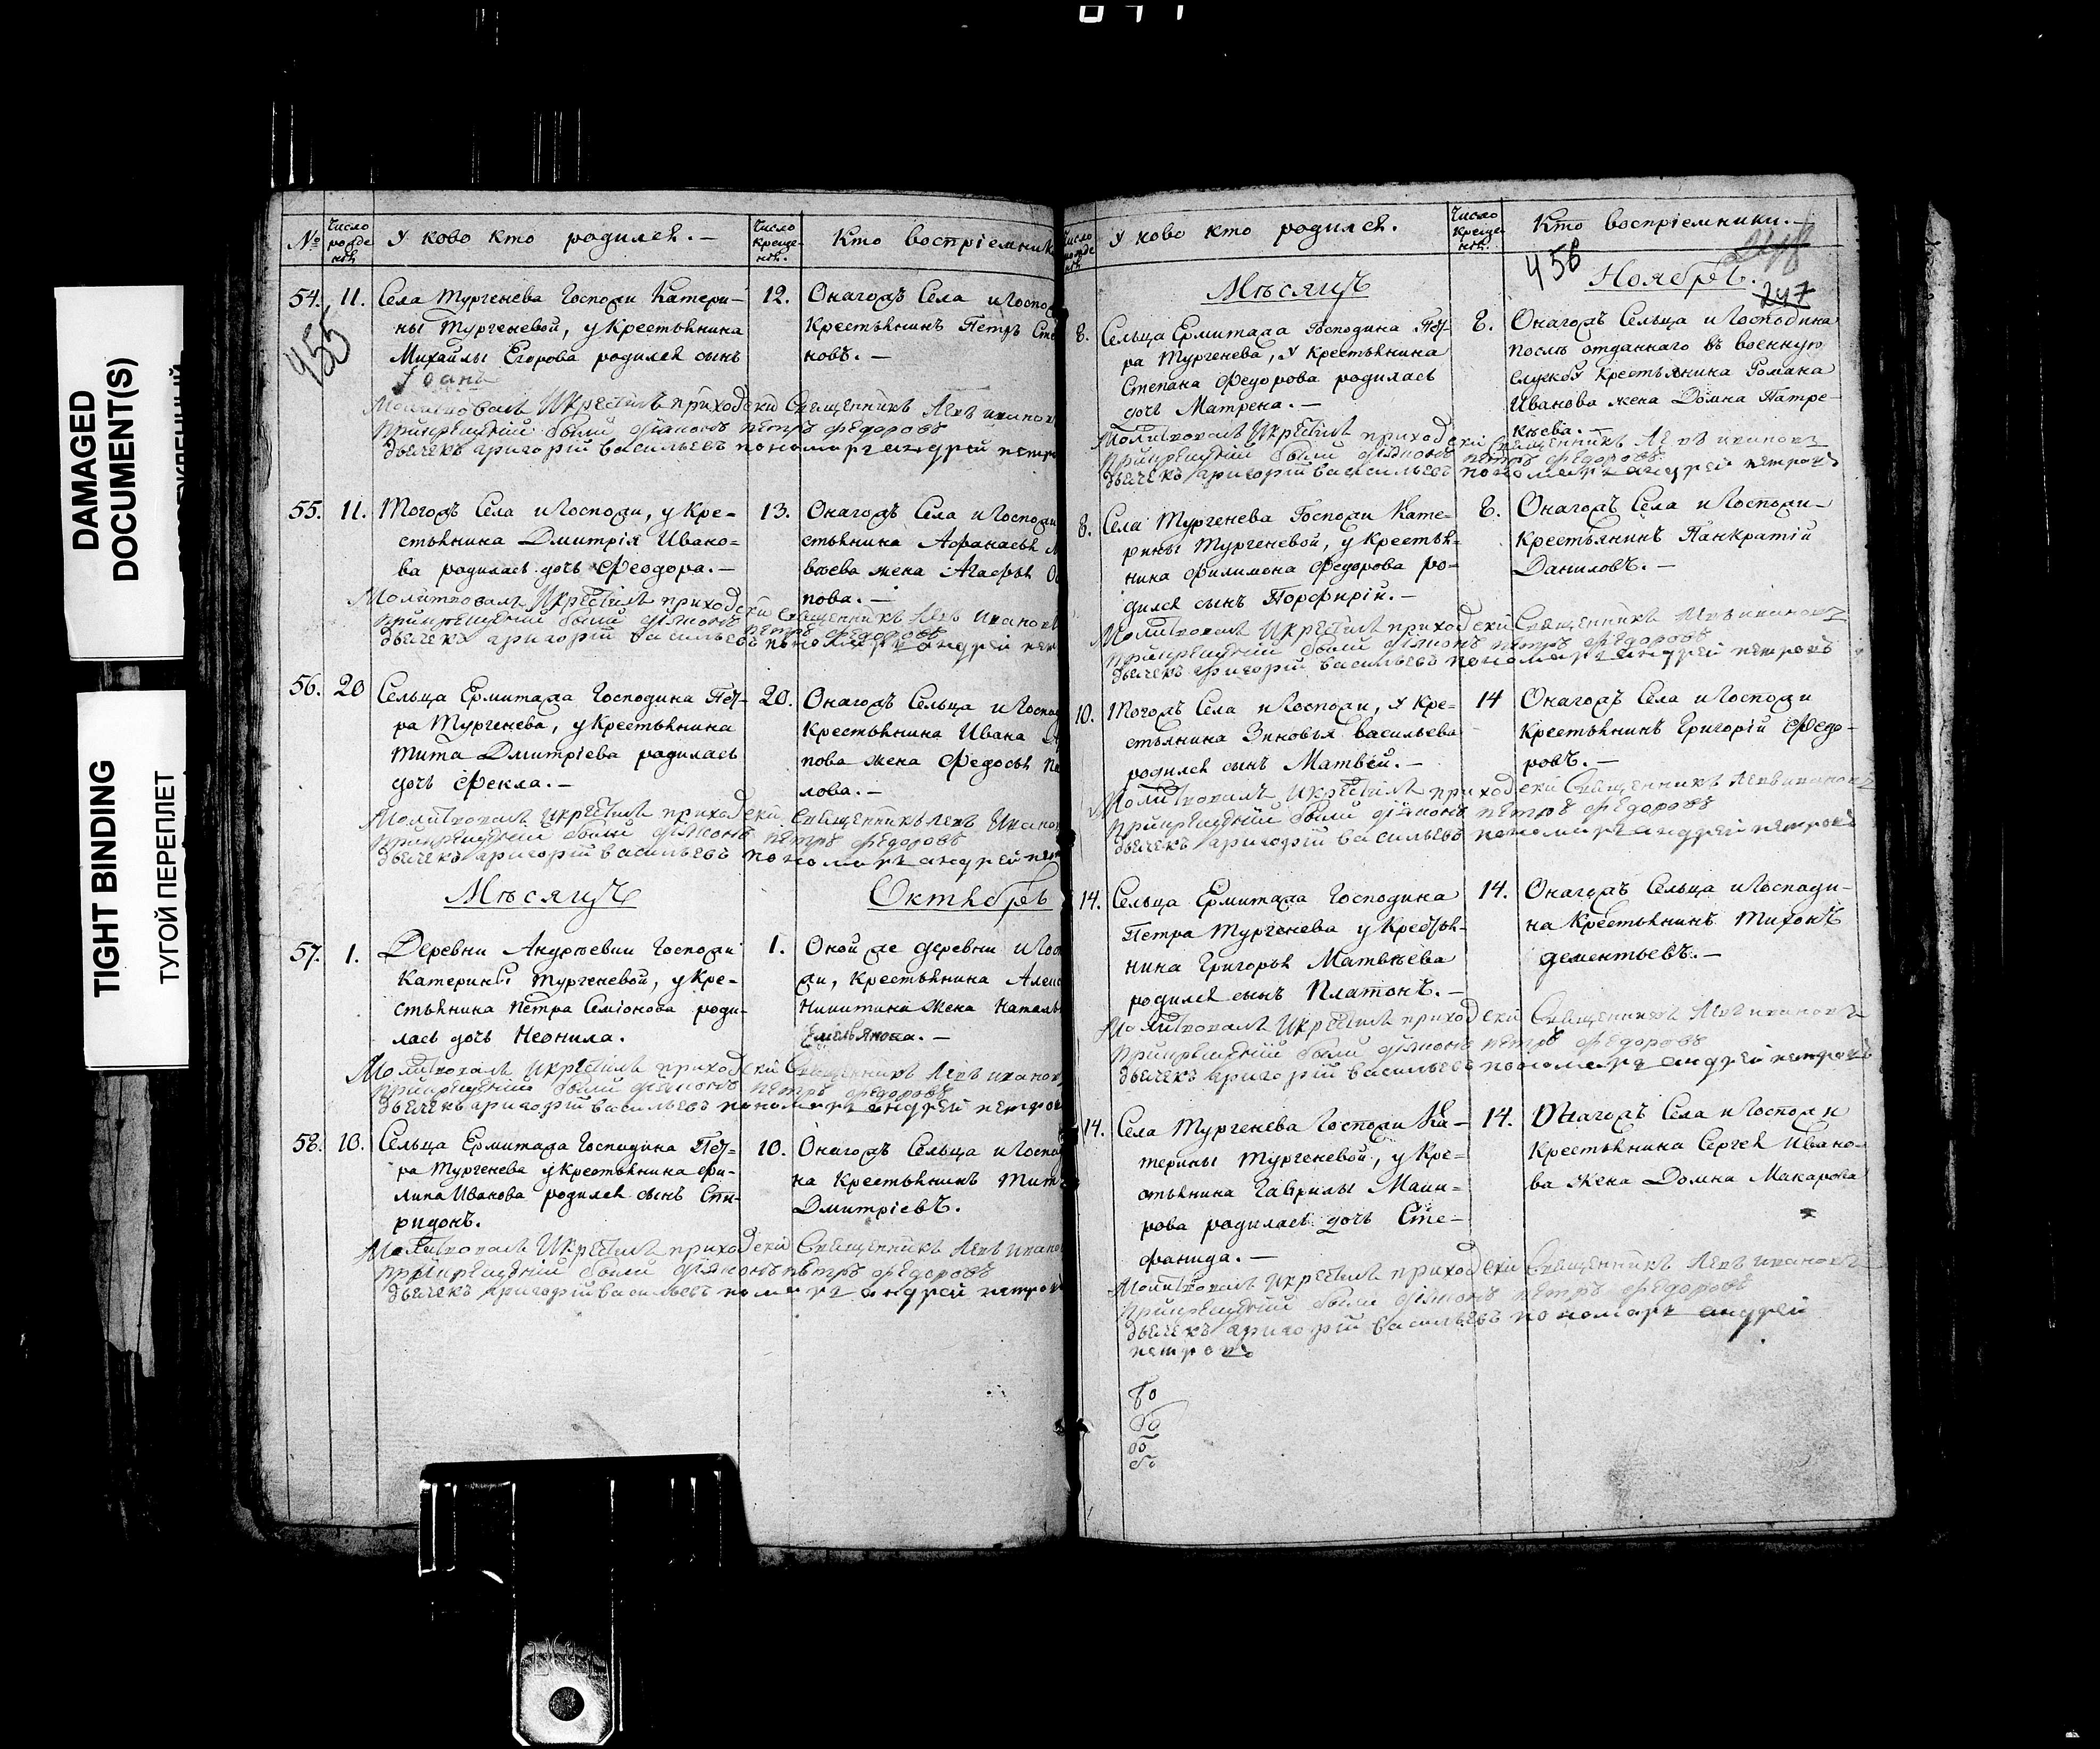 DAMAGED
DOCUMENT(S)
TIGHT BINDING
ТУГОЙ ПЕРЕПЛЕТ
№
Число рожде нія
У ково кто родился. —
Число креще- нія.
Кто воспріемник
455
54. 11. Села Тургенева Госпожи Катери-
ны Тургеневой, у Крестьянина
Михайлы Егорова родился сынъ
Іоанъ
12. Онагожъ Села и Госпо
Крестьянинъ Петръ
новъ. —
Молитвовалъ и крестилъ приходской священникъ Левъ иванов
при крещеніи были діяконъ петръ федоровъ
дьячекъ григорій васильевъ пономарь андрей петр
55. 11. Тогожъ Села и Госпожи, у Кре-
стьянина Дмитрія Ивано-
ва родилась дочь Феодора. —
13. Онагожъ Села и Госпожи
стьянина Афанасья
вѣева жена Агафья
пова. —
Молитвовалъ и крестилъ приходской священникъ Левъ иванов
при крещеніи были діяконъ петръ федоровъ
дьячекъ григорій васильевъ пономарь андрей пет
56. 20 Сельца Ермитажа Господина Пет-
ра Тургенева, у Крестьянина
Тита Дмитріева родилась
дочь Фекла. —
20. Онагожъ Сельца и Госпо
Крестьянина Ивана
пова жена Федосья
лова. —
Молитвовалъ и крестилъ приходской священникъ левъ Иванов
при крещеніи были діяконъ петръ федоровъ
дьячекъ григорій васильевъ пономарь андрей пет
Мѣсяцъ Октябрь
57. 1. Деревни Андреевки Госпожи
Катерины Тургеневой, у Кре-
стьянина Петра Семіонова роди-
лась дочь Неонила.
1. Оной же деревни и Гос
жи, Крестьянина Алек
Никитина жена Наталь
Емельянова. —
Молитвовалъ и крестилъ приходской священникъ Левъ иванов
при крещеніи были діяконъ петръ федоровъ
дьячекъ григорій васильевъ пономарь андрей петров
58. 10. Сельца Ермитажа Господина Пет-
ра Тургенева у Крестьянина Фи-
липа Иванова родился сынъ Спи-
ридонъ.
10. Онагожъ Сельца и Госпо
на Крестьянинъ Тит
Дмитріевъ.
Молитвовалъ и крестилъ приходской священникъ Левъ ивано
при крещеніи были діяконъ петръ федоровъ
дьячекъ григорій васильевъ помарь андрей петров
У ково кто родился.
Число креще- нія.
Кто воспріемники. —
458
248
247
Мѣсяцъ Ноябрь.
8. Сельца Ермитажа Господина Пет-
ра Тургенева, у Крестьянина
Степана Федорова родилась
дочь Матрена. —
8. Онагожъ Сельца и Господина
послѣ отданнаго въ военную
службу Крестьянина Романа
Иванова жена Домна Патре-
кѣева. —
Молитвовалъ и крестилъ приходской священникъ Левъ ивановъ
при крещеніи были діяконъ петръ федоровъ
дьячекъ григорій васильевъ пономарь андрей петровъ
8. Села Тургенева Госпожи Кате-
рины Тургеневой, у Крестья-
нина Филимона Федорова ро-
дился сынъ Порфирій. —
8. Онагожъ Села и Госпожи
Крестьянинъ Панкратій
Даниловъ. —
Молитвовалъ и крестилъ приходской священникъ Левъ ивановъ
при крещеніи были діяконъ петръ федоровъ
дьячекъ григорій васильевъ пономарь андрей петровъ
10. Тогожъ Села и Госпожи, у Кре-
стьянина Зиновья Васильева
родился сынъ Матвѣй. —
14 Онагожъ Села и Госпожи
Крестьянинъ Григорій Федо-
ровъ. —
Молитвовалъ и крестилъ приходской священникъ Левъ ивановъ
при крещеніи были діяконъ петръ федоровъ
дьячекъ григорій васильевъ пономарь андрей петровъ
14. Сельца Ермитажа Господина
Петра Тургенева у Крестья-
нина Григорья Матвѣева
родился сынъ Платонъ. —
14. Онагожъ Сельца и Господи-
на Крестьянинъ Тихонъ
Дементьевъ. —
Молитвовалъ и крестилъ приходской священникъ Левъ ивановъ
при крещеніи были діяконъ петръ федоровъ
дьячекъ григорій васильевъ пономарь андрей петровъ
14. Села Тургенева Госпожи Ка-
терины Тургеневой, у Кре-
стьянина Гаврилы Маки-
рова родилась дочь Сте-
фанида. —
14. Онагожъ Села и Госпожи
Крестьянина Сергея Ивано-
ва жена Домна Макарова
Молитвовалъ и крестилъ приходской священникъ Левъ ивановъ
при крещеніи были діяконъ петръ федоровъ
дьячекъ григорій васильевъ пономарь андрей
петровъ